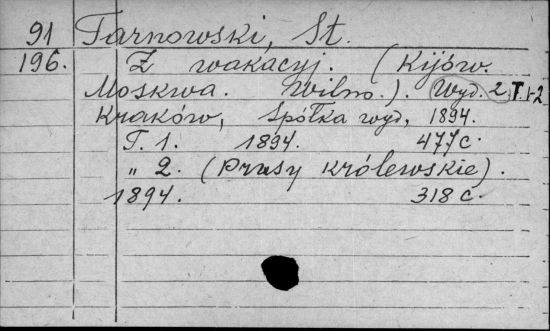 91 Tarnowski, St.
196. Z wakacyj. (Kijów.
Moskwa. Wilno.). (Wyd. 2) T. 1-2
Kraków, Spółka wyd, 1894.
T. 1. 1894. 477 c.
" 2. (Prusy królewskie).
1894. 318 c.